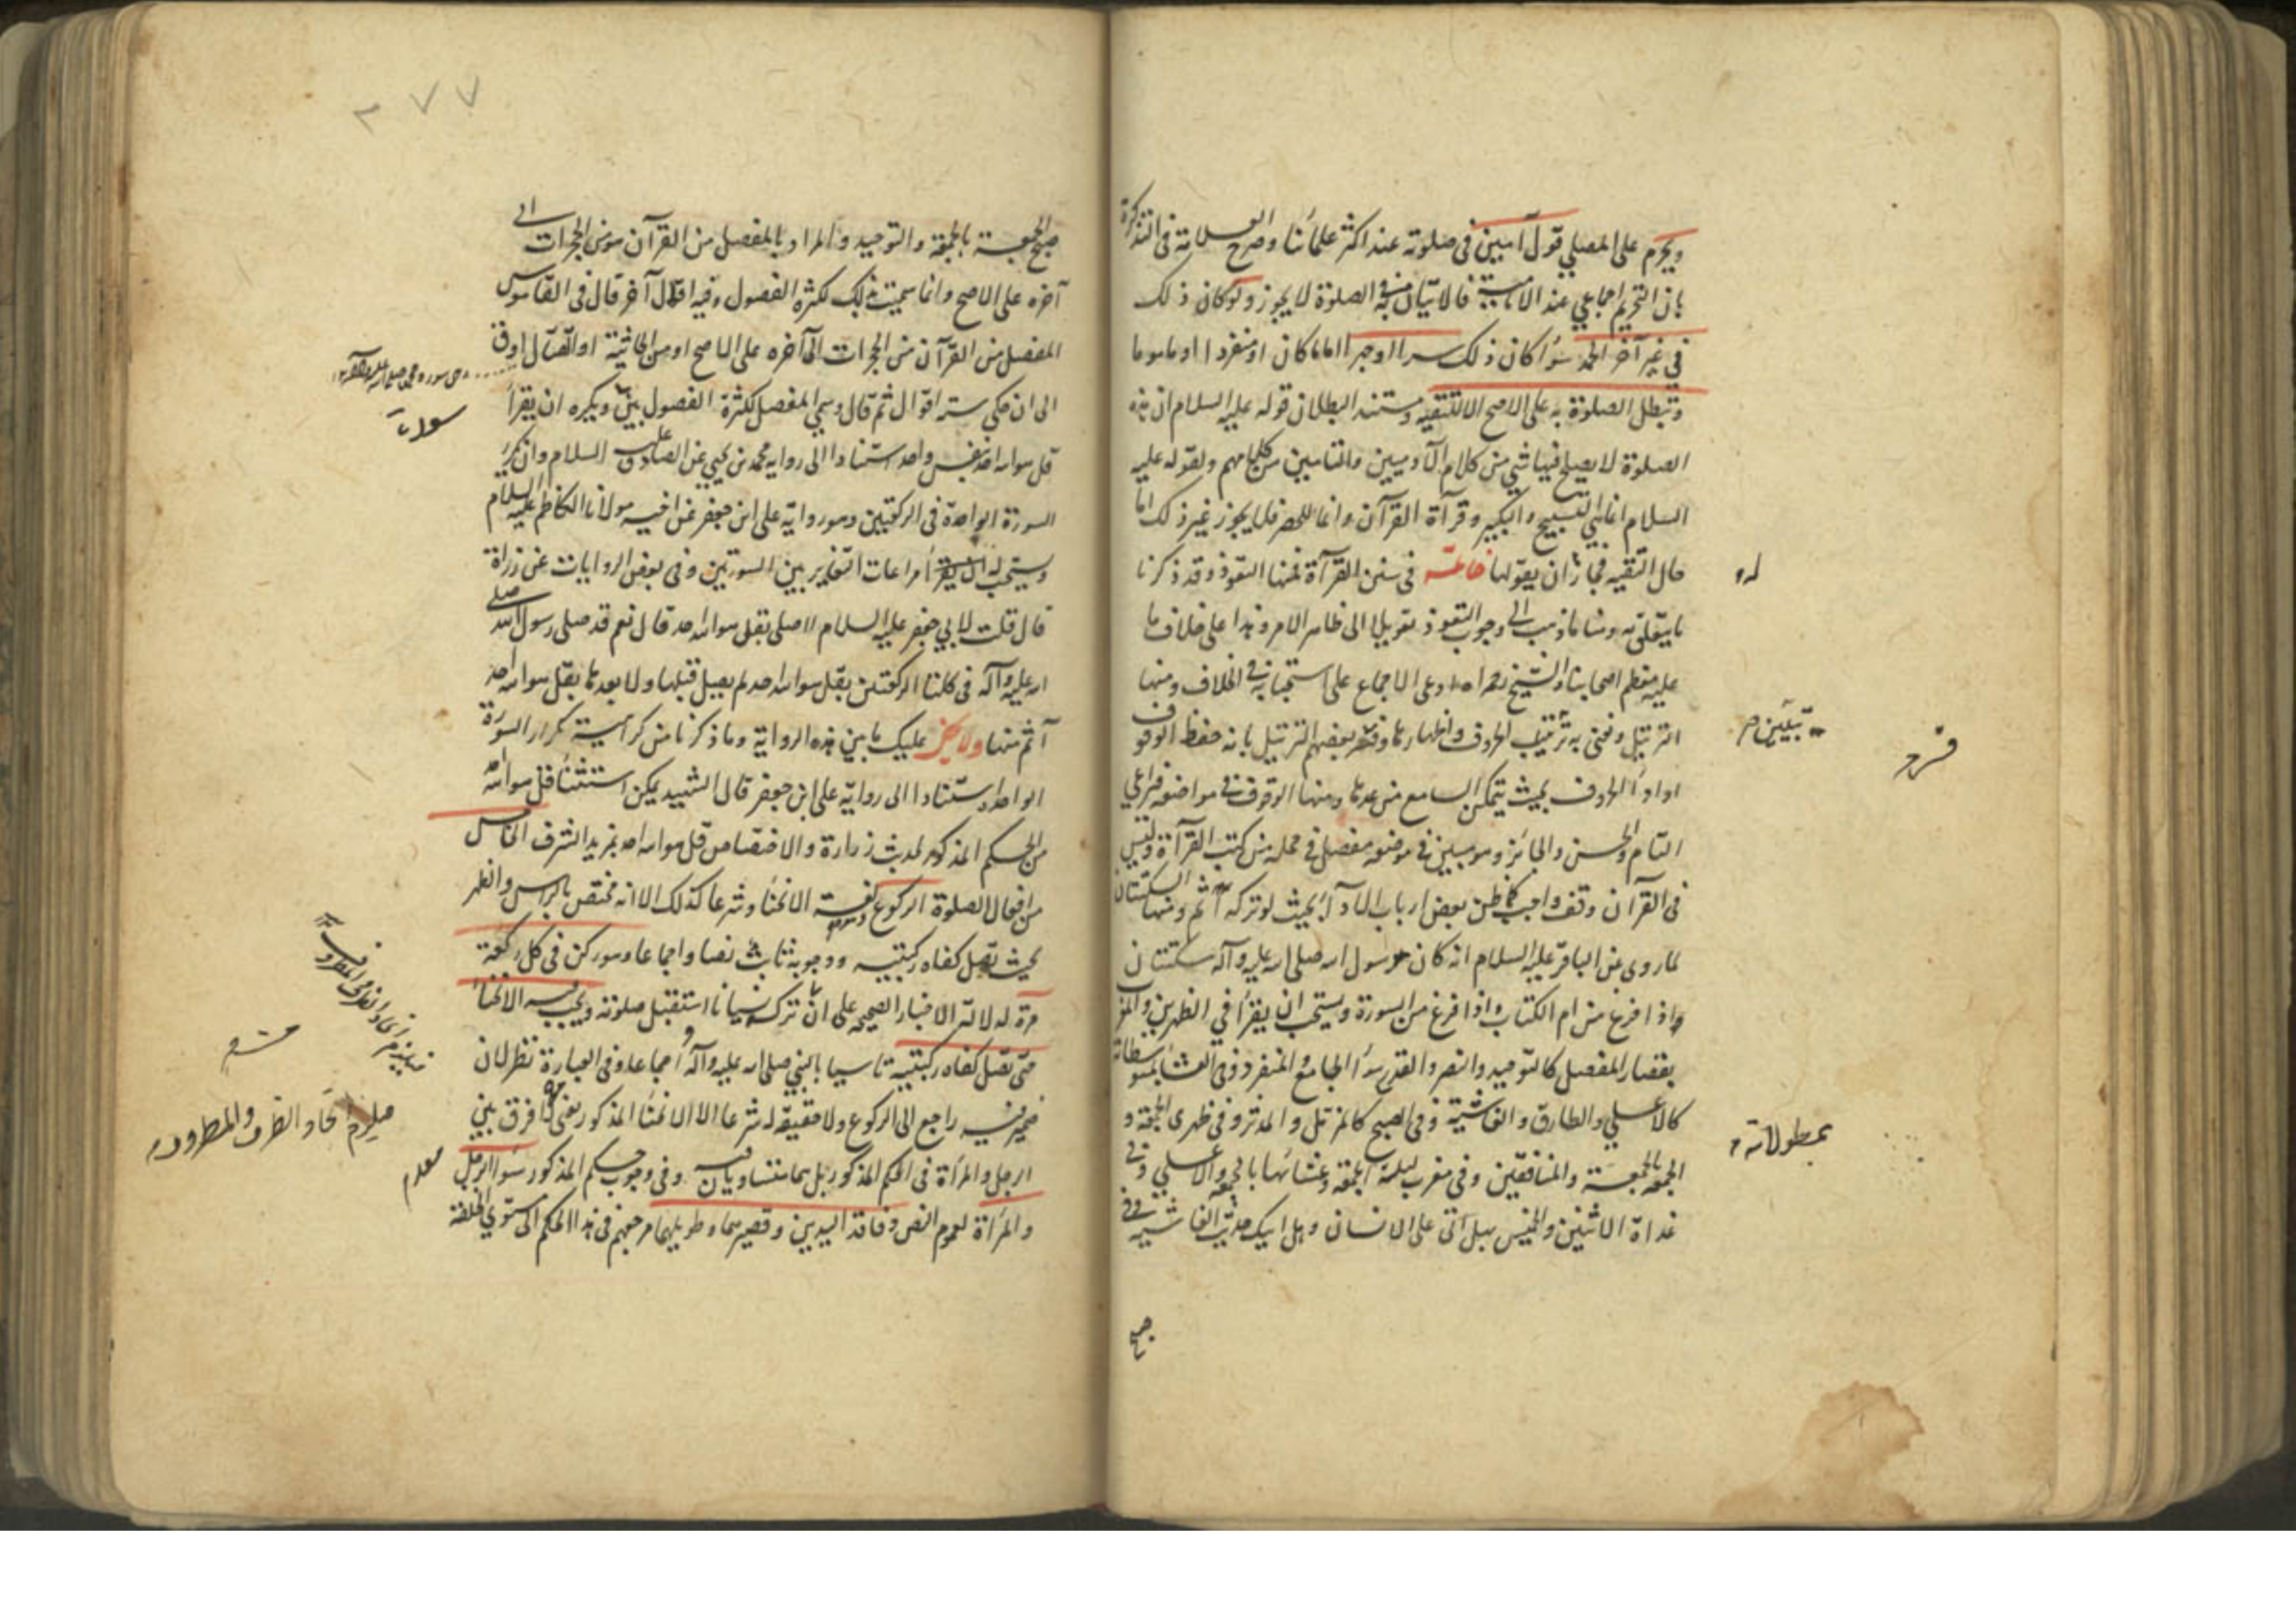 ويحرم على المصلي قول آمين في صلوته عند اكثر علمائنا وصرح العلامة في التذكرة
بان التحريم اجماعي عند الامامية فالاتيان به في الصلوة لا يجوز ولو كان ذلك
في غير آخر الحمد سواء كان ذلك سرا او جهرا اماما كان او منفردا او ماموما
وتبطل الصلوة به على الاصح الا لتقيه ومستند البطلان قوله عليه السلام ان هذه
الصلوة لا يصلح فيها شي من كلام الآدميين والتامين من كلامهم ولقوله عليه
السلام انما هي التسبيح والتكبير وقرآة القرآن وانما للحصر فلا يجوز غير ذلك اما
حال التقيه فجاز ان يقولها خاتمة في سنن القرآة فمنها التعوذ وقد ذكرنا
له
ما يتعلق به ومنا ما ذهب الى وجوب التعوذ تعويلا الى ظاهر الامر وهذا على خلاف ما
عليه معظم اصحابنا والشيخ رحمه الله ادعى الاجماع على استحبابه في الخلاف ومنها
الترتيل ونعنى به الحروف واظهارها وفسر بعضهم الترتيل بانه حفظ الوقوف
تبيين
واداء الحروف بحيث يتمكن السامع من عدها ومنها الوقوف في مواضعه فيراعي
التام والحسن والجائز وهو مبين في موضعه مفصل في محله من كتب القرآة وليس
في القرآن وقف واجب كما ظن بعض ارباب الاداء بحيث لو تركه اثم ومنها السكتتان
لما روى عن الباقر عليه السلام انه كان لرسول الله صلى الله عليه وآله سكتتان
اذا فرغ من ام الكتاب واذا فرغ من السورة ويستحب ان يقرأ في الظهرين والمغرب
بقصار المفصل كالتوحيد والنصر والقدر سواء الجامع والمنفرد وفي العشاء بمتوسطاته
كالاعلى والطارق والغاشية وفي الصبح كالمزمل والمدثر وفي ظهرى الجمعة و
بمطولاته
الجمعه بالجمعة والمنافقين وفي مغرب ليلة الجمعة وعشائها بالجمعه والاعلى وفي
غداة الاثنين والخميس بهل اتى على الانسان وهل اتيك حديث الغاشيه وفي
صبح
٣٧٧
صبح الجمعة بالجمعة والتوحيد والمراد بالمفصل من القرآن هو من الحجرات الى
آخره على الاصح وانما سميت بذلك لكثرة الفصول وفيه اقوال آخر قال في القاموس
المفصل من القرآن من الحجرات الى آخره على الاصح او من الجاثية او القتال او ق
الى ان حكى ستة اقوال ثم قال وسمي المفصل لكثرة الفصول بين ويكره ان يقرأ
سوره
قل هو الله احد بنفس واحد استنادا الى رواية محمد بن يحيى عن الصادق عليه السلام وان يكرر
السورة الواحدة في الركعتين وهو رواية على ابن جعفر عن اخيه مولانا الكاظم عليه السلام
ويستحب له مراعات التغاير بين السورتين وفي بعض الروايات عن زرارة
قال قلت لابي جعفر عليه السلام اصلى بقل هو الله احد قال نعم قد صلى رسول الله صلى
الله عليه وآله في كلتا الركعتين بقل هو الله احد لم يصل قبلها ولا بعدها بقل هو الله احد
اتم منها عليك ما بين هذه الرواية وما ذكرنا من كراهية تكرار السورة
الواحدة استنادا الى رواية على ابن جعفر قال الشهيد يمكن استثناء قل هو الله احد
من الحكم المذكور لحديث زرارة والاختصاص قل هو الله احد بمزيد الشرف الخامس
من افعال الصلوة الركوع وهو لغة الانحناء وشرعا كذلك الا انه مختص بالراس والظهر
بحيث تصل كفاه ركبتيه ووجوبه ثابت نصا واجماعا وهو ركن في كل ركعة
مرة لدلالة الاخبار الصحيحه على ان تركه نسيانا استقبل صلوته ويجب فيه الانحناء
حتى تصل كفاه ركبتيه تاسيا بالنبي صلى الله عليه وآله واجماعا وفي العبارة نظر لان
ضمير فيه راجع الى الركوع ولا حقيقة له شرعا الا الانحناء المذكور فرق بين
الرجل والمرأة في الحكم المذكور بل هما متساويان فيه وفي وجوب الحكم المذكور سواء الرجل
والمرأة لعموم النص وفاقد اليدين وقصيرهما وطويلهما مرجعهم في هذا الحكم الى مستوي الخلقة